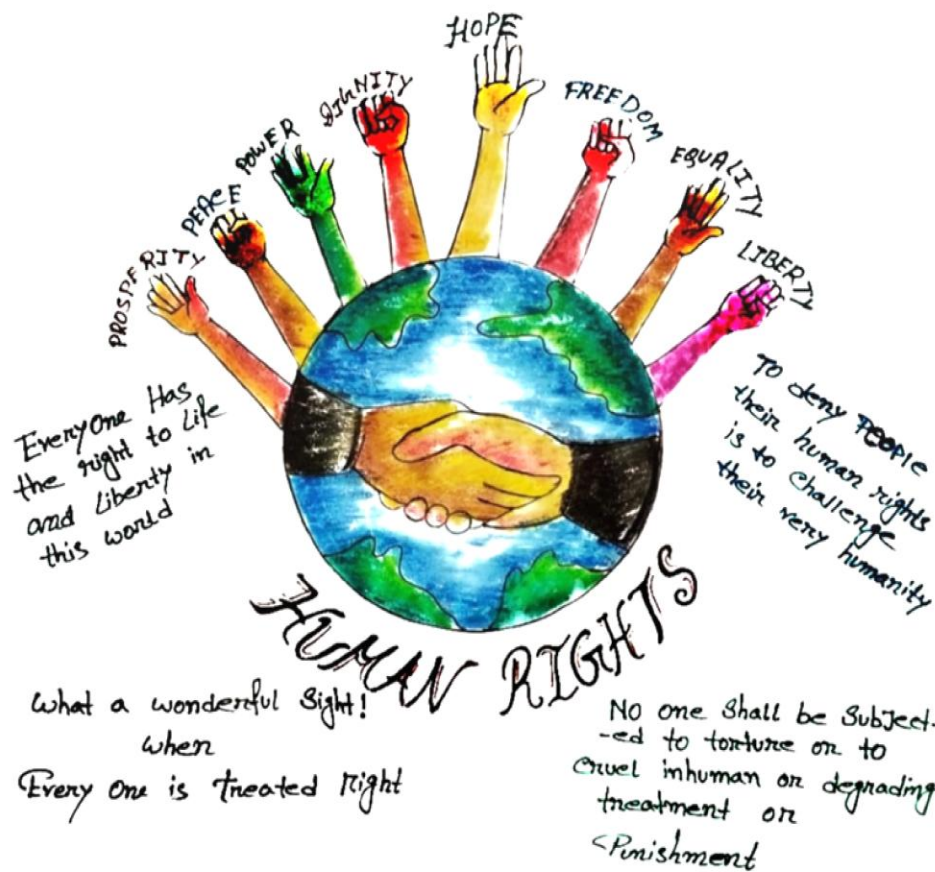 PROSPERITY
PEACE
POWER
DIGNITY
HOPE
FREEDOM
EQUALITY
LIBERTY
EveryOne Has
the right to Life
and Liberty in
this world
To deny PEOPLE
their human rights
is to challenge
their very humanity
HUMAN RIGHTS
What a wonderful Sight!
when
Every One is treated Right
No one Shall be SubJect-
-ed to torture or to
Cruel inhuman or degrading
treatment or
Punishment